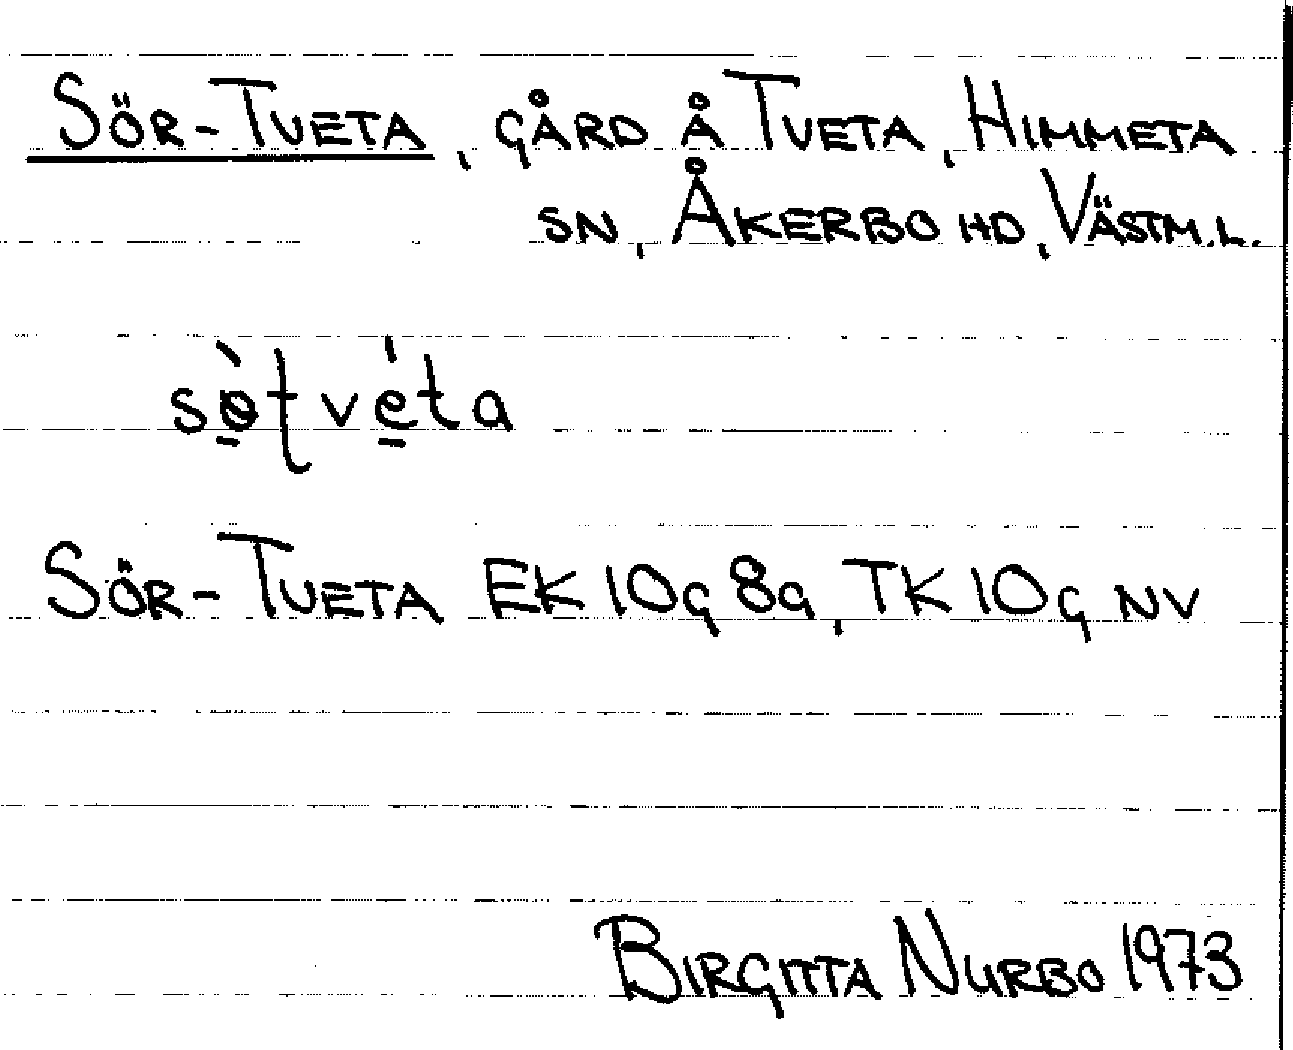 SÖR-TVETA, GÅRD Å TVETA, HIMMETA
SN, ÅKERBO HD, VÄSTM.L.
sɵ̠̀ʈvé̠ta
SÖR-TVETA EK 10G 8a, TK 10G NV
BIRGITTA NURBO 1973